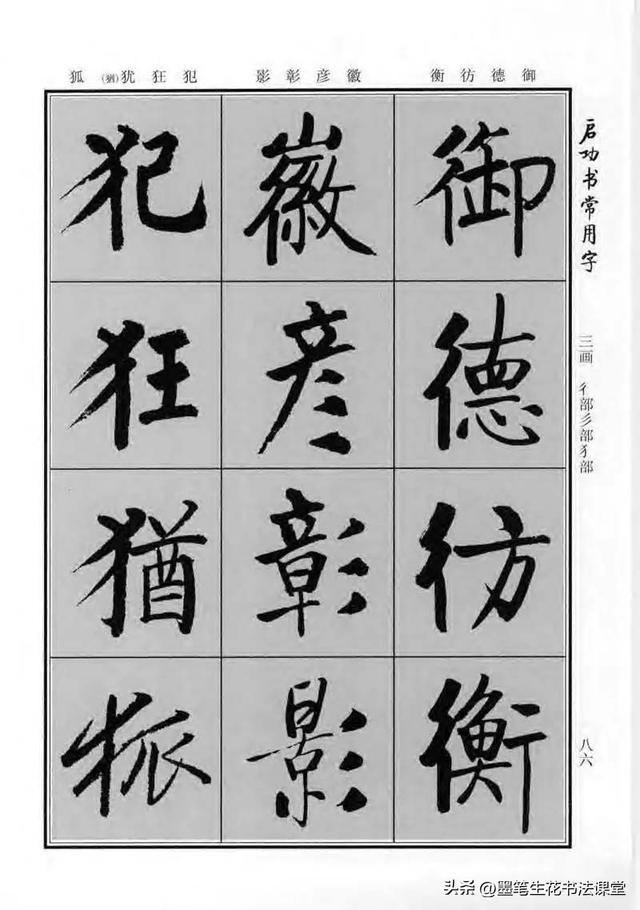 御德彷衡 徽彦彰影 犯狂犹(猶)狐
启功书常用字
三画 彳部彡部犭部
八六
御德彷衡
徽彦彰影
犯狂猶狐
头条 @墨笔生花书法课堂